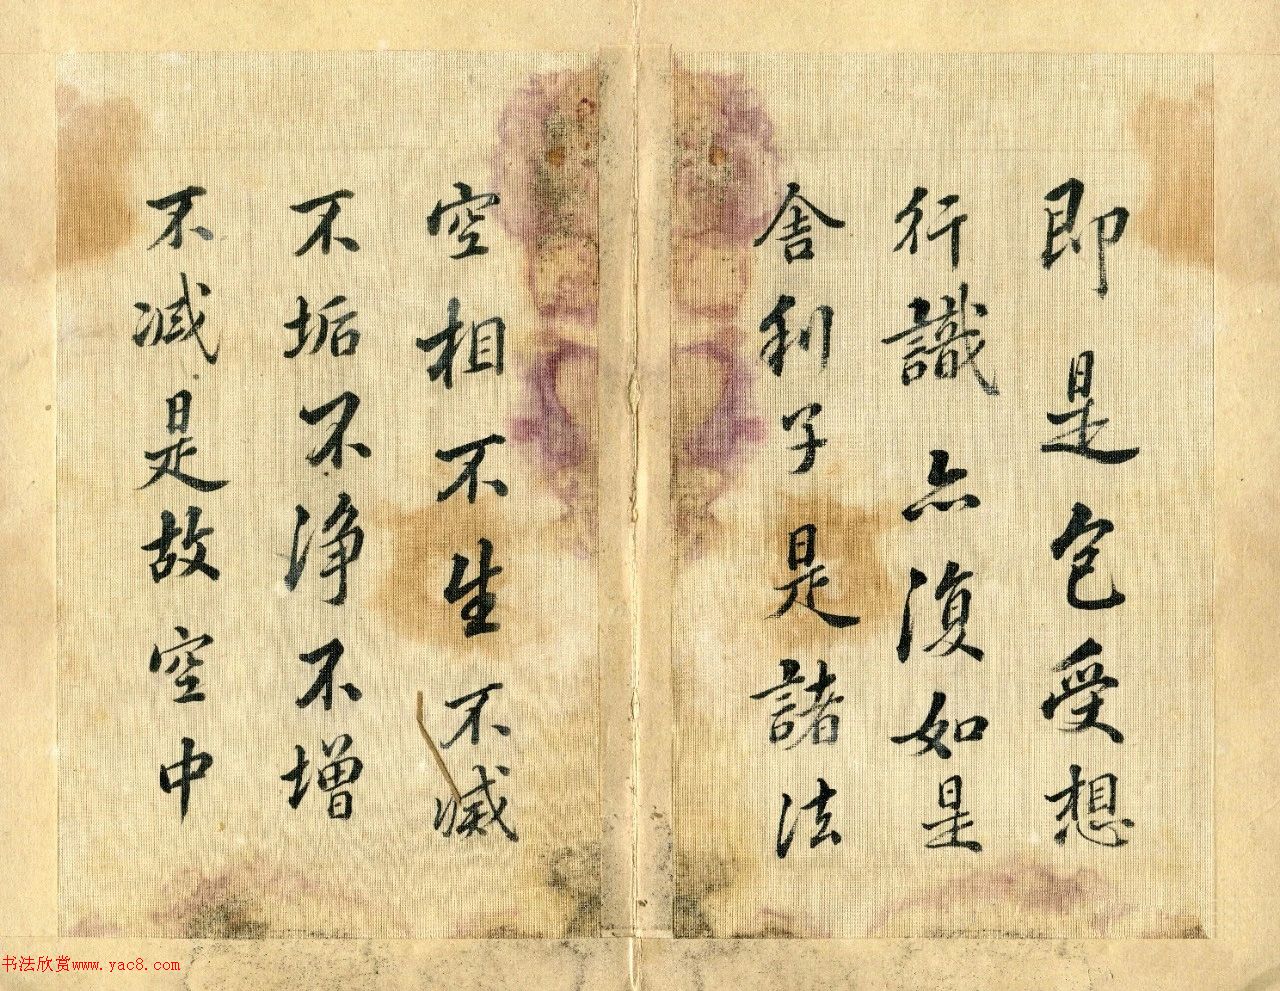 即是色受想
行識亦復如是
舎利子是諸法
空相不生不滅
不垢不淨不增
不減是故空中
书法欣赏www.yac8.com